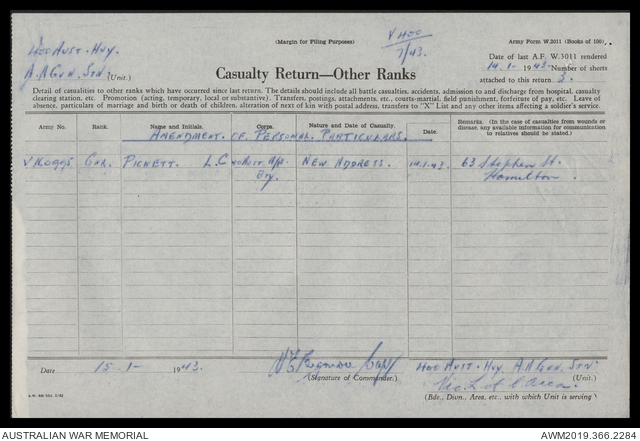 (Margin for Filing Purposes)
V 400
7/43.
Army Form W.3011 (Books of 100)
400 Aust. Hvy.
A.A Gun. Stn. (Unit.)
Date of last A.F. W.3011 rendered
14-1- 1943. Number of sheets
attached to this return
Casualty Return—Other Ranks
Detail of casualties to other ranks which have occurred since last return. The details should include all battle casualties, accidents, admission to and discharge from hospital, casualty
clearing station, etc. Promotion (acting, temporary, local or substantive). Transfers, postings, attachments, etc., courts-martial, field punishment, forfeiture of pay, etc. Leave of
absence, particulars of marriage and birth or death of children, alteration of next of kin with postal address, transfers to "X" List and any other items affecting a soldier's service.
Army No. Rank. Name and Initials. Corps. Nature and Date of Casualty. Date. Remarks. (In the case of casualties from wounds or
disease, any available information for communication
to relatives should be stated.)
Amendment of Personal Particulars.
Gnr. Pickett. L.C New Address. 14.1.43. 63 Stephen St.
Bty. Hamilton.
Date 15-1- 1943.
(Signature of Commander.)
400 Aust. Hvy A.A Gun. Stn. (Unit.)
(Bde., Divn., Area, etc., with which Unit is serving)
AUSTRALIAN WAR MEMORIAL
AWM2019.366.2284